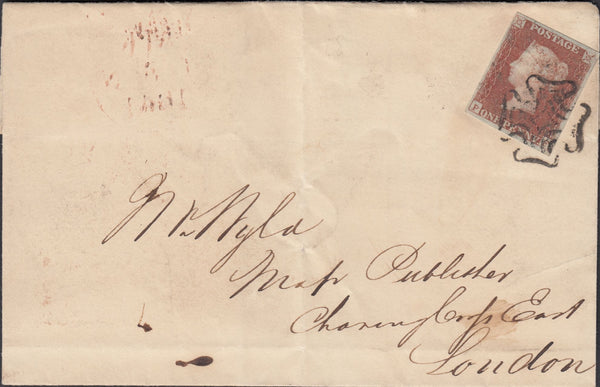 POSTAGE
ONE P
Mr Wyld
Map Publisher
Charing Cross East
London